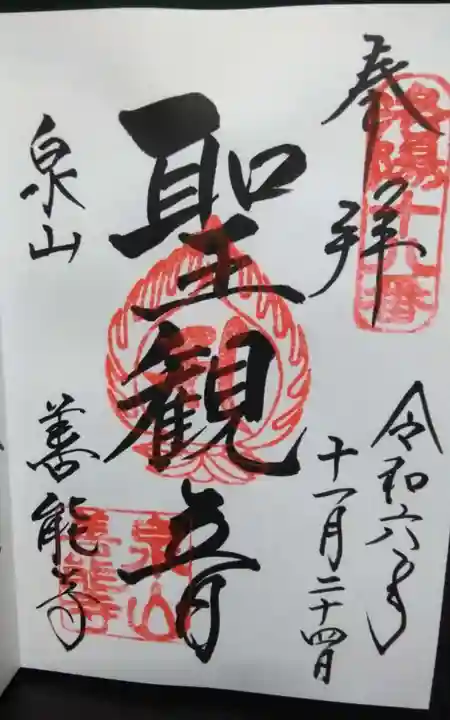 奉拝
洛陽十八番
令和六年
十一月二十四日
聖観音
泉山
善能寺
泉山
善能寺